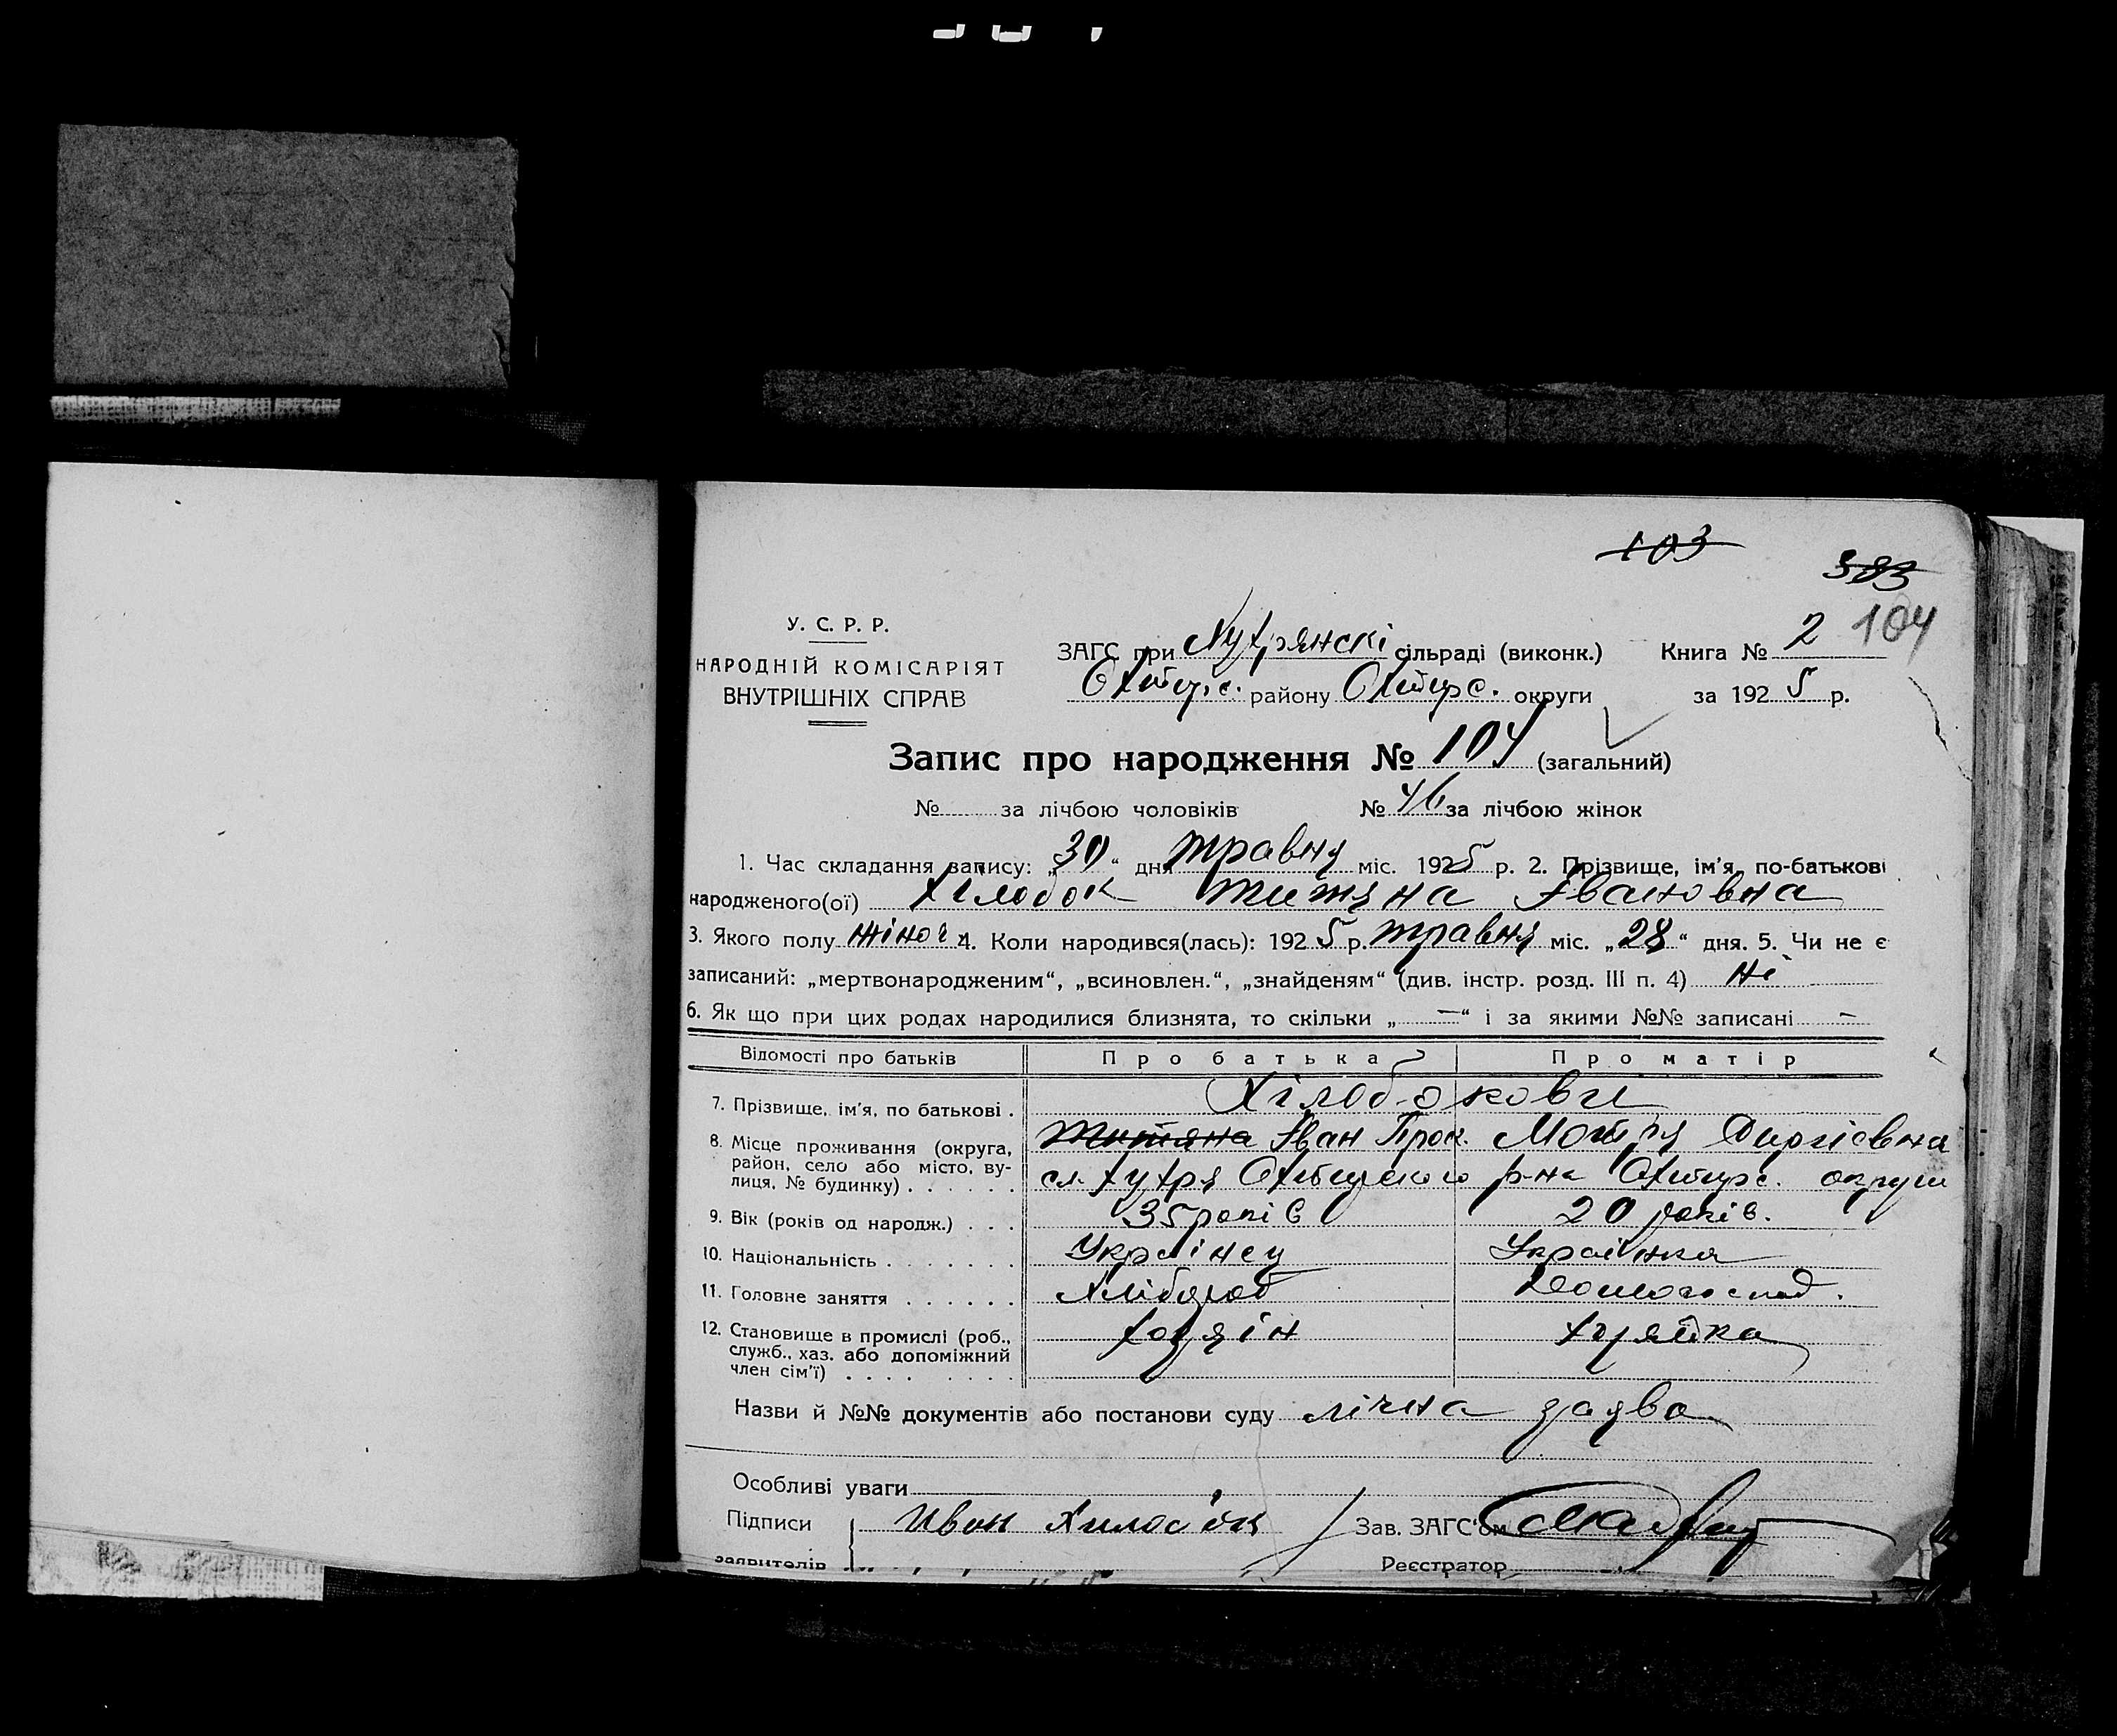 103
383
104
У. С. Р. Р.
НАРОДНІЙ КОМІСАРІЯТ
ВНУТРІШНІХ СПРАВ
ЗАГС при Хухрянскі сільраді (виконк.) Книга № 2
Охтирс. району Охтирс. округи за 1925 р.
Запис про народження № 104 (загальний)
№ за лічбою чоловіків № 46 за лічбою жінок
1. Час складання запису: „30“ дня травня міс. 1925 р. 2. Прізвище, ім'я, по-батькові
народженого(ої) Хілобок Титяна Івановна
3. Якого полу жіноч. 4. Коли народився(лась): 1925 р. травня міс. „28“ дня. 5. Чи не є
записаний: „мертвонародженим“, „всиновлен.“, „знайденям“ (див. інстр. розд. III п. 4) ні
6. Як що при цих родах народилися близнята, то скільки „—“ і за якими №№ записані —
Відомості про батьків Про батька Про матір
7. Прізвище, ім'я, по батькові . Хілобокови
Титяна Іван Прок. Мотря
8. Місце проживання (округа,
район, село або місто, ву-
лиця, № будинку) . . . . . . сл. Хухря Охтирского р-на Охтирс. округи
9. Вік (років од народж.) . . . 35 років 20 років.
10. Національність . . . . . . . Українец Українка
11. Головне заняття . . . . . . Хлібороб Домогоспод.
12. Становище в промислі (роб.,
служб., хаз. або допоміжний
член сім'ї) . . . . . . . . Хозяін Хазяйка
Назви й №№ документів або постанови суду лічна заява
Особливі уваги
Підписи Иван Хилобок Зав. ЗАГС'ом
заявителів Реєстратор